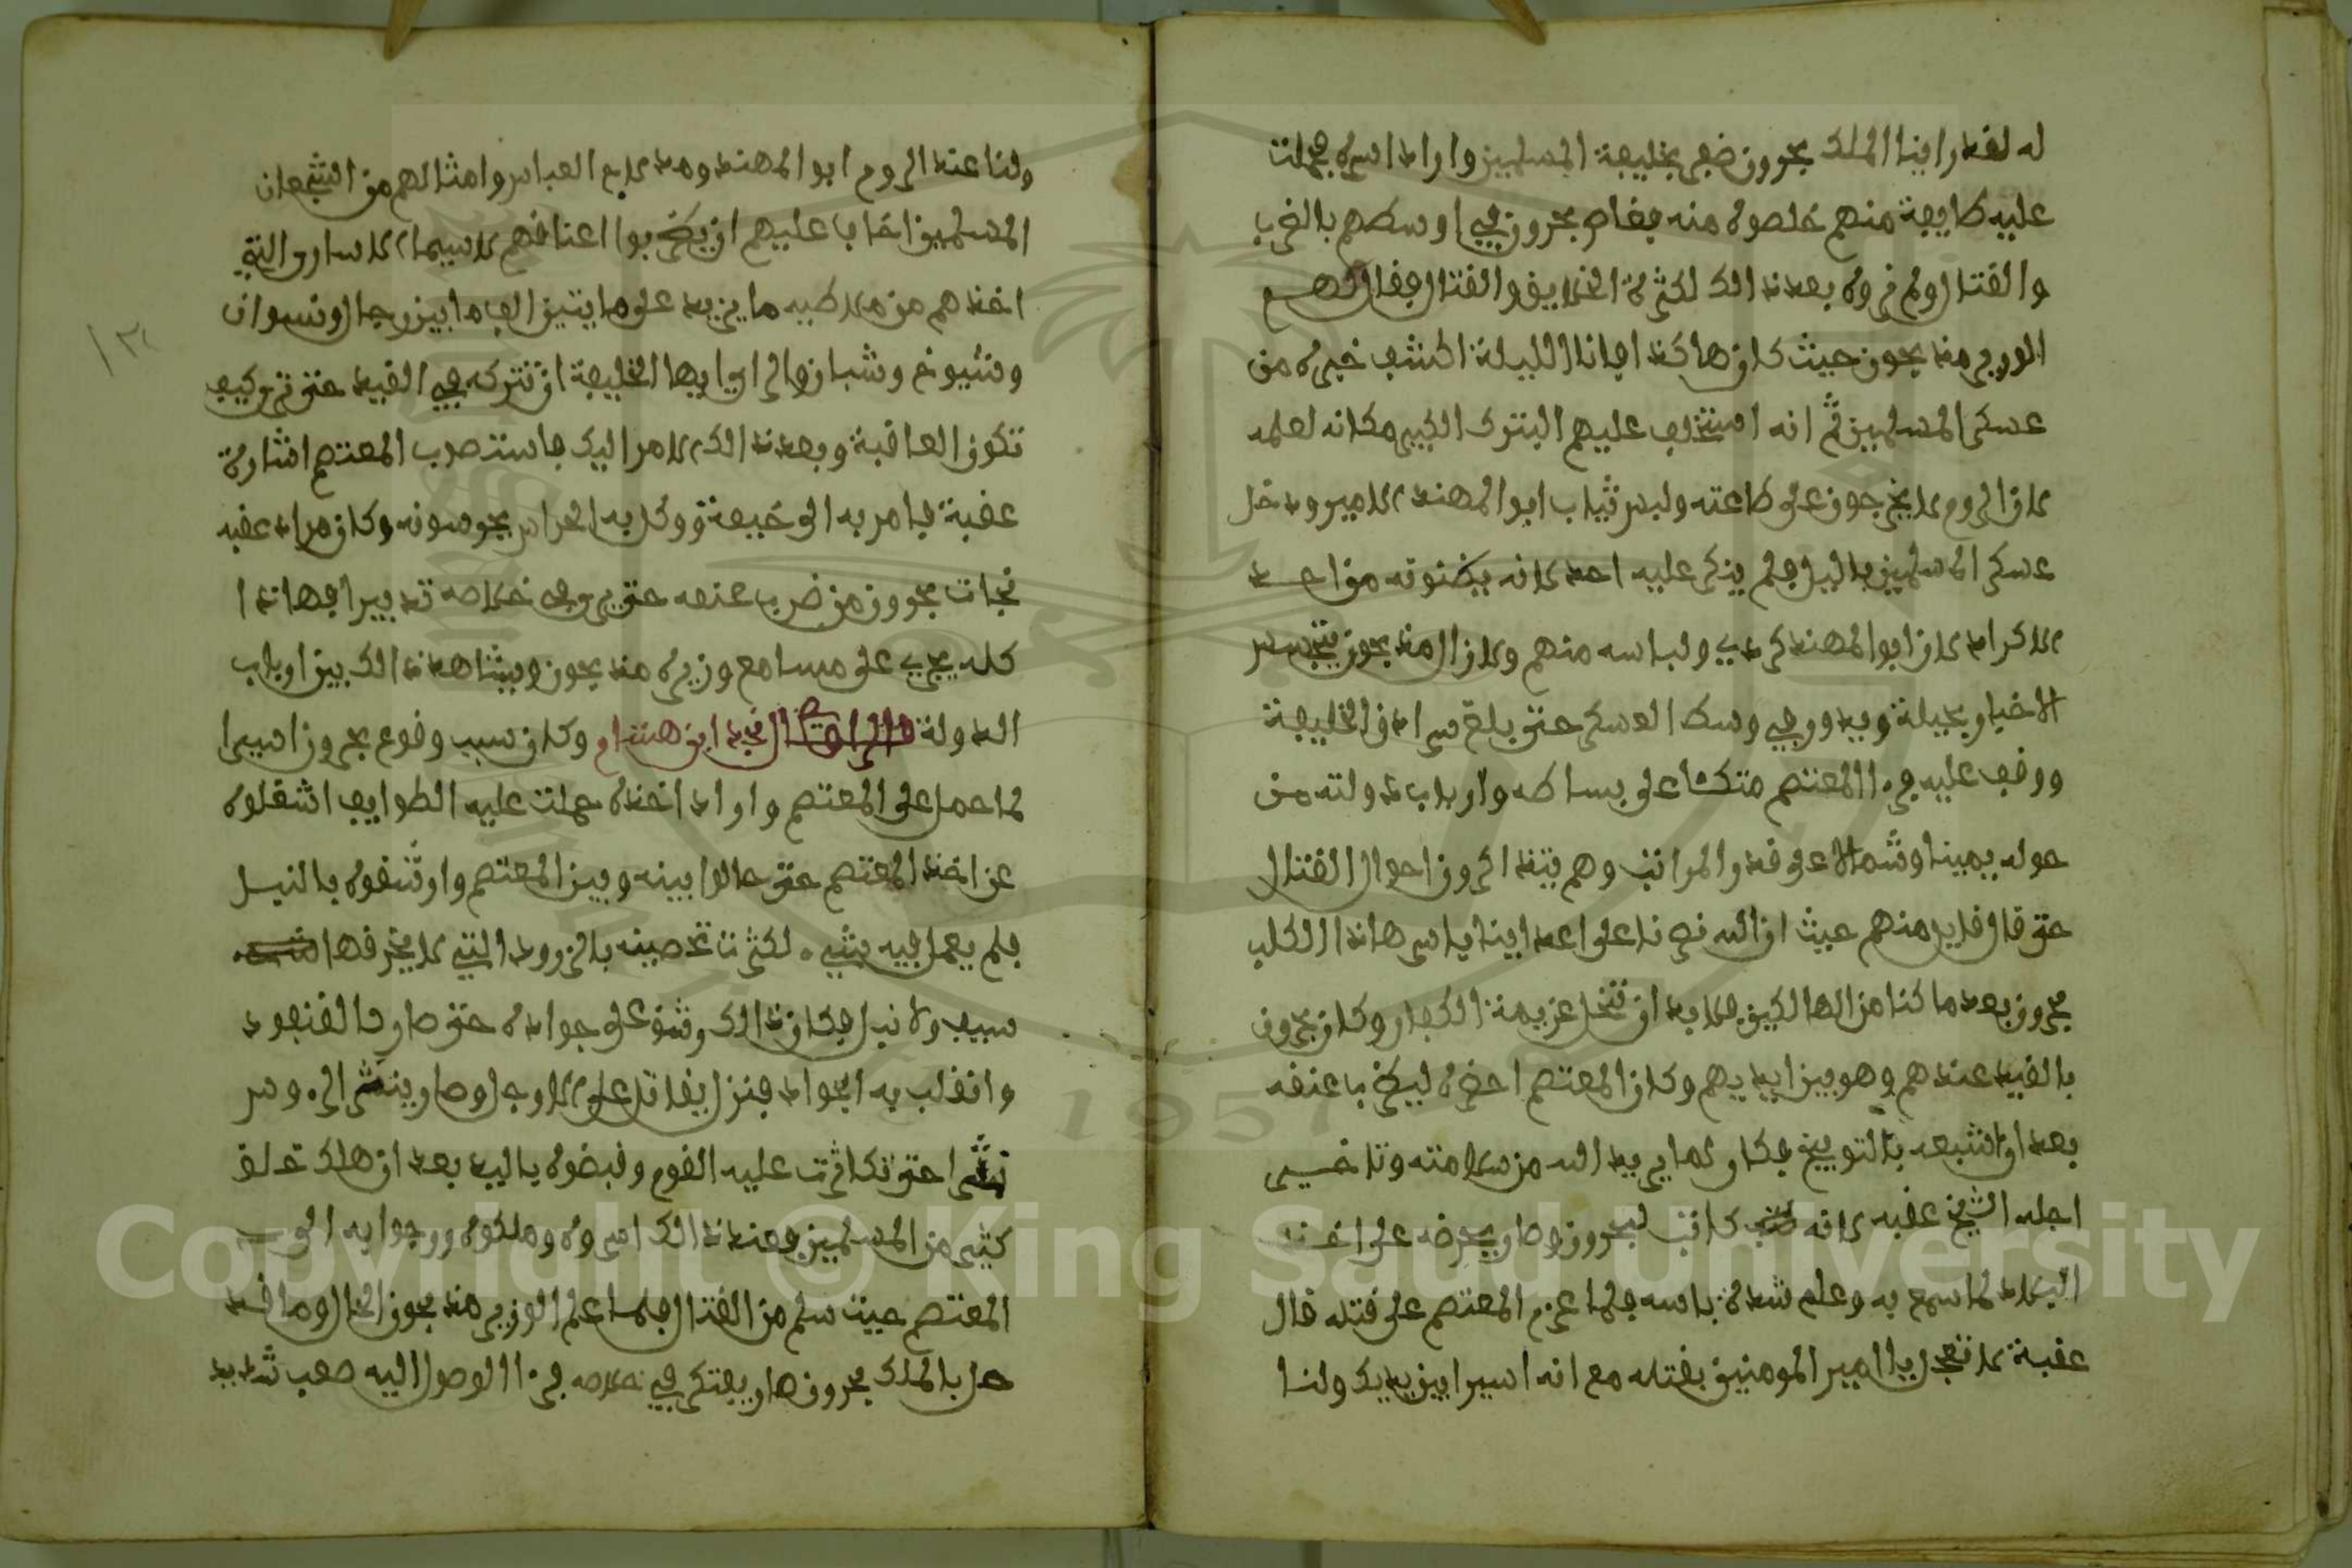 له لقد راينا الملك بحرون ضعى بخليفة المسلمين واراد اسره فحملت
عليه طايفة منهم خلصوه منه فغاص بحرون في اوسطهم بالضرب
والقتال ولم نروه بعد ذالك لكثرة الخلايق والقتال فقال لهم
الوزير منديحون حيث كان هاكذا فانا الليلة اكشف خبره من
عسكر المسلمين ثم انه استخلف عليهم البترك الكبير مكانه لعلمه
لان الروم لا يخرجون على طاعته ولبس ثياب ابوالمهند الامير ودخل
عسكر المسلمين باليل فلم ينكر عليه احد لانه يضنونه من احد
الاكراد لان ابوالمهند كردي ولباسه منهم ولازال منديحون يتجسس
الاخبار بحيلة ويدور في وسط العسكر حتى بلغ سرادق الخليفة
ووقف عليه فرءا المعتصم متكئا على بساطه وارباب دولته من
حوله يمينا وشمالا على قدر المراتب وهم يتذاكرون احوال القتال
حتى قال قايل منهم حيث ان الله نصرنا على اعداينا باسر هاذا الكلب
بحرون بعد ما كنا من الهالكين فلا بد ان تنحل عزيمة الكفار وكان بحرون
بالقيد عندهم وهو بين ايديهم وكان المعتصم احضره ليضرب عنقه
بعد ان اشبعه بالتوبيخ فكان لما يريد الله من سلامته وتاخير
اجله الشيخ عقبه لانه كاتب لبحرون وصار يحرضه على اخذ
البلاد لما سمع به وعلم شدة باسه فلما عزم المعتصم على قتله قال
عقبة لا تعجل يا امير المومنين بقتله مع انه اسير بين يديك ولنا
ولنا عند الروم ابوالمهند ومدلاج العباس وامثالهم من الشجعان
المسلمين اخاف عليهم ان يضربوا اعناقهم لاسيما الاسارى التي
اخذهم من ملاطيه ما يزيد على مايتين الف ما بين رجال ونسوان
وشيوخ وشبان والراي ايها الخليفة ان نتركه في القيد حتى نرى كيف
تكون العاقبة وبعد ذالك الامر اليك فاستصوب المعتصم اشارة
عقبة فامر به الى خيمة ووكل به الحراس يحرسونه وكان مراد عقبه
نجات بحرون من ضرب عنقه حتى يرى في خلاصه تدبيرا فهاذا
كله يجري على مسامع وزيره منديحون ويشاهد ذالك بين ارباب
الدولة قال الراوي نجد ابن هشام وكان سبب وقوع بحرون اسيرا
لما حمل على المعتصم واراد اخذه حملت عليه الطوايف اشغلوه
عن اخذ المعتصم حتى حالوا بينه وبين المعتصم وارشقوه بالنبل
فلم يعمل فيه شيء لكثرت تحصينه بالزرود التي لا يخرقها
سيف ولا نبل فكان ذالك وشق على جواده حتى صار كالقنفود
وانقلب به الجواد فنزل يقاتل على الارجل وصار ينثر الرءوس
نثرا حتى تكاثرت عليه القوم وقبضوه باليد بعد ان هلك خلق
كثير من المسلمين فعند ذالك اسروه وملكوه ورجوا به الى
المعتصم حيث سلم من القتال فلما علم الوزير منديحون الحال وما قد
حل بالملك بحرون صار يفتكر في خلاصه فرءا الوصول اليه صعب شديد